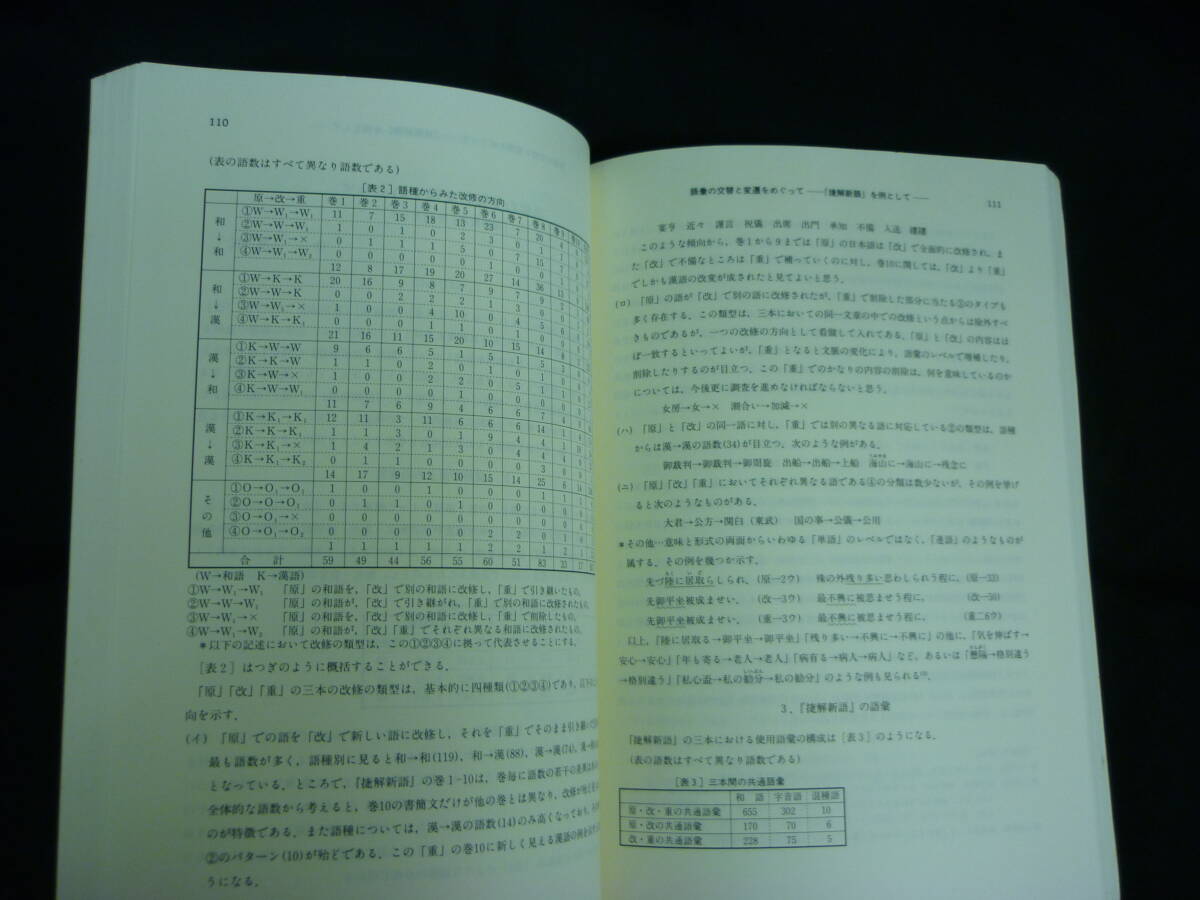 110
(表の語数はすべて異なり語数である)
[表2] 語種からみた改修の方向
原→改→重 巻1 巻2 巻3 巻4 巻5 巻6 巻7 巻8
和↓和
①W→W₁→W₁ 11 7 15 18 13 23 7 20
②W→W→W₁ 1 0 1 0
③W→W₁→× 0 1 1 1
④W→W₁→W₂ 0 0 0 0
12 8 17 19 20 27 14 36
和↓漢
①W→K→K 20 16 9 8 7 9 7 9
②W→W→K 0 0 2 2
③W→W₁→× 1 0 0 4
④W→K→K₁ 0 0 0 1
21 16 11 15 20 10 15 14
漢↓和
①K→W→W 9 6 6 5 1 5
②K→K→W 1 1 0 2 0 1
③K→W→× 1 0 0 2 2 0
④K→W→W₁ 0 0 0 0
11 7 6 9 4 6 6
漢↓漢
①K→K₁→K₁ 12 11 3 11 6 6 6 7
②K→K→K₁ 1 1 3 0 1 9
③K→K₁→× 1 4 2 1 3 0
④K→K₁→K₂ 0 1 1 0 0 0 0
14 17 9 12 10 15 14 25
その他
①O→O₁→O₁ 1 0 0 1 0 0 0
②O→O→O₁ 0 1 1 0 0 0
③O→O₁→× 0 0 0 0 0 0
④O→O₁→O₂ 0 0 0 0 0 2 2 0
1 1 1 1 1 2 2 1
合計 59 49 44 56 55 60 51 83
(W→和語 K→漢語)
①W→W₁→W₁ 「原」の和語を,「改」で別の和語に改修し,「重」で引き継いたもの。
②W→W→W₁ 「原」の和語が,「改」で引き継がれ,「重」で別の和語に改修されたもの。
③W→W₁→× 「原」の和語を,「改」で別の和語に改修し,「重」で削除したもの。
④W→W₁→W₂ 「原」の和語が,「改」「重」でそれぞれ異なる和語に改修されたもの。
*以下の記述において改修の類型は,この①②③④に拠って代表させることにする。
[表2]はつぎのように概括することができる。
「原」「改」「重」の三本の改修の類型は,基本的に四種類(①②③④)であり,
向を示す。
(イ) 「原」での語を「改」で新しい語に改修し,それを「重」でそのまま引き継
最も語数が多く,語種別に見ると和→和(119),和→漢(88),漢→漢(74),
となっている。ところで,『捷解新語』の巻1-10は,巻毎に語数の若干の差異は
全体的な語数から考えると,巻10の書簡文だけが他の巻とは異なり,改修が
のが特徴である。また語種については,漢→漢の語数(14)のみ高くなっており,
②のパターン(10)が殆どである。この「重」の巻10に新しく見える漢語の例を
うになる。
語彙の交替と変遷をめぐって――『捷解新語』を例として―― 111
宴亨 近々 謹言 祝儀 出席 出門 承知 不備 入送
このような傾向から,巻1から9までは「原」の日本語は「改」で全面的に改修され,ま
た「改」で不備なところは「重」で補っていくのに対し,巻10に関しては,「改」より「重」
でしかも漢語の改変が成されたと見てよいと思う。
(ロ) 「原」の語が「改」で別の語に改修されたが,「重」で削除した部分に当たる③のタイプも
多く存在する。この類型は,三本においての同一文章の中での改修という点からは除外すべ
きものであるが,一つの改修の方向として看做して入れてある。「原」と「改」の内容はほ
ぼ一致するといってよいが,「重」となると文脈の変化により,語彙のレベルで増補したり,
削除したりするのが目立つ。この「重」でのかなりの内容の削除は,何を意味しているのか
については,今後更に調査を進めなければならないと思う。
女房→女→× 潮合い→加減→×
(ハ) 「原」と「改」の同一語に対し,「重」では別の異なる語に対応している②の類型は,語種
からは漢→漢の語数(34)が目立つ。次のような例がある。
御裁判→御裁判→御周旋 出船→出船→上船 海山に→海山に→残念に
(ニ) 「原」「改」「重」においてそれぞれ異なる語である④の分類は数少ないが,その例を挙げ
ると次のようなものがある。
大君→公方→関白(東武) 国の事→公儀→公用
*その他…意味と形式の両面からいわゆる「単語」のレベルではなく,「連語」のようなものが
属する。その例を幾つか示す。
先づ陸に居取らしられ,(原一2ウ) 殊の外残り多い思わしられう程に,(原一33)
先御平坐被成ませい,(改一3ウ) 最不興に被思ませう程に,(改一50)
先御平坐被成ませい,(重一3ウ) 最不興に被思ませう程に,(重二6ウ)
以上,「陸に居取る→御平坐→御平坐」「残り多い→不興に→不興に」の他に,「気を伸ばす→
安心→安心」「年も寄る→老人→老人」「病有る→病人→病人」など,あるいは「懸隔→格別違う
→格別違う」「私心盃→私の勧分→私の勧分」のような例も見られる
3.『捷解新語』の語彙
『捷解新語』の三本における使用語彙の構成は[表3]のようになる。
(表の語数はすべて異なり語数である)
[表3] 三本間の共通語彙
和語 字音語 混種語
原・改・重の共通語彙 655 302 10
原・改の共通語彙 170 70 6
改・重の共通語彙 228 75 5